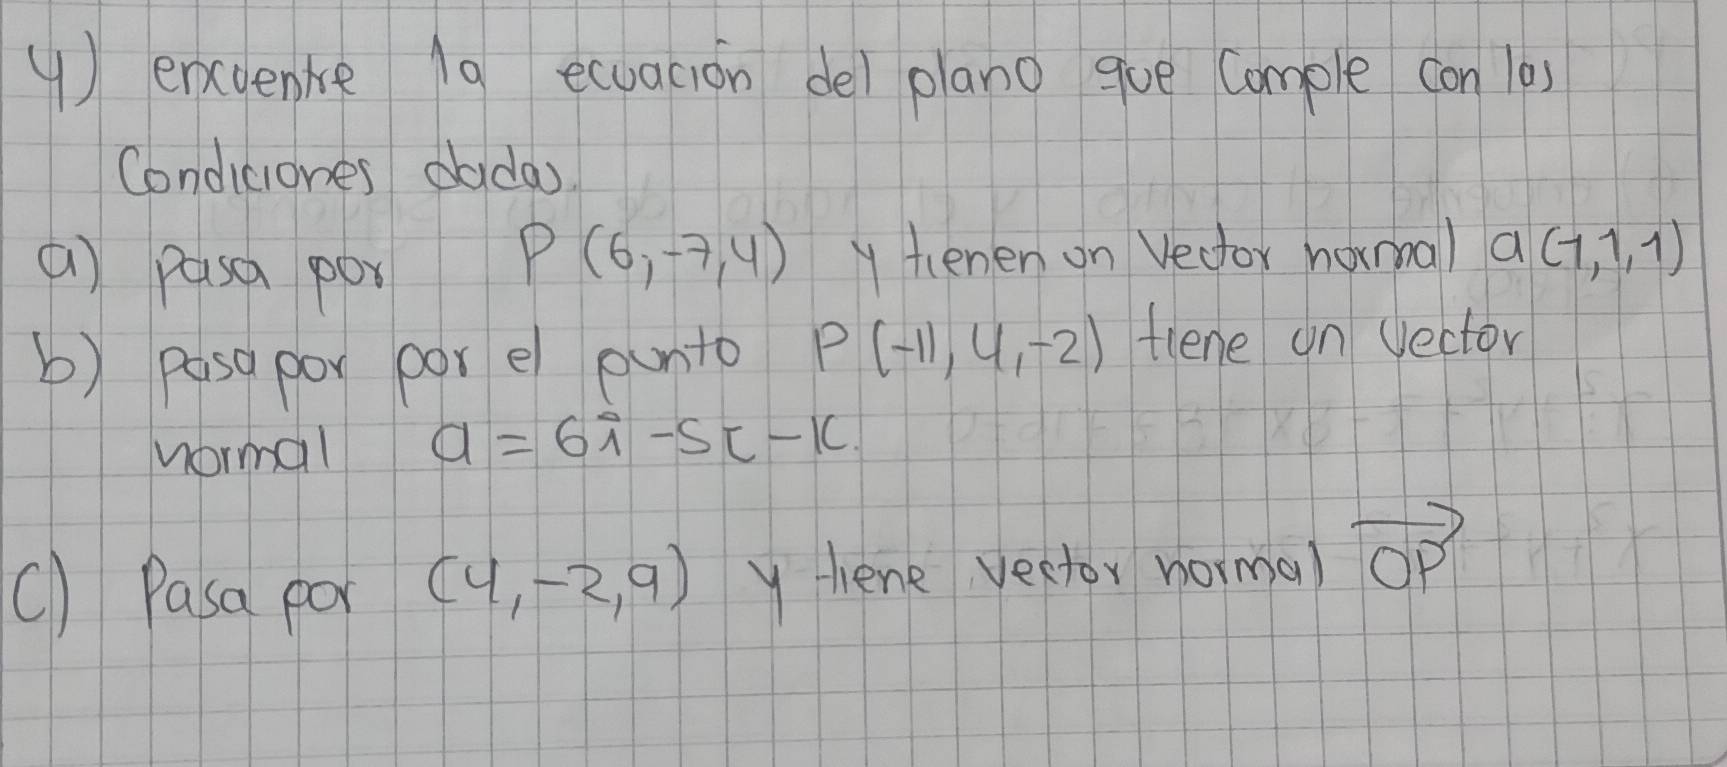 4) encuentre la ecuación del plano que Comple con las
Condiciones dadas.
a) pasa por P (6,-7,4) y tienen un Vector normal a (-1,1,1)
b) pasa por por el punto P (-11, 4,-2) tiene un vector
normal a = 6î -5τ -k.
c) Pasa por (4,-2,9) y tiene vector normal \overrightarrow{OP}